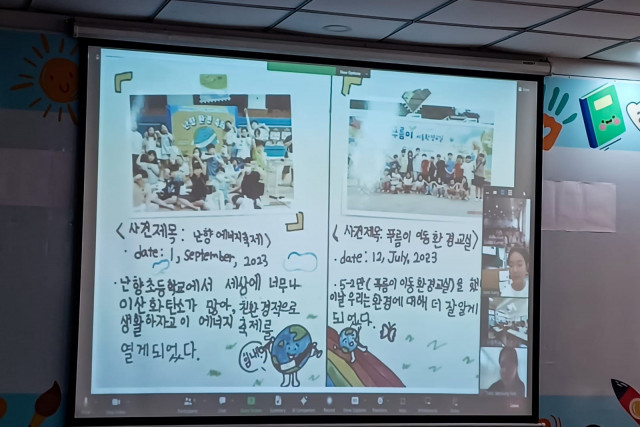 난향 환경 축제
〈사건제목 : 난향 에너지축제〉
· date: 1, september, 2023
· 난향초등학교에서 세상에 너무나
이산화탄소가 많아, 친환경적으로
생활하자고 이 에너지 축제를
열게 되었다.
힘내
푸름이 이동환경교실
〈사건제목: 푸름이 이동 환경교실〉
· date: 12, July, 2023
· 5-2반(푸름이 이동환경교실)을
이날 우리는 환경에 대해 더 잘 알게
되었다.